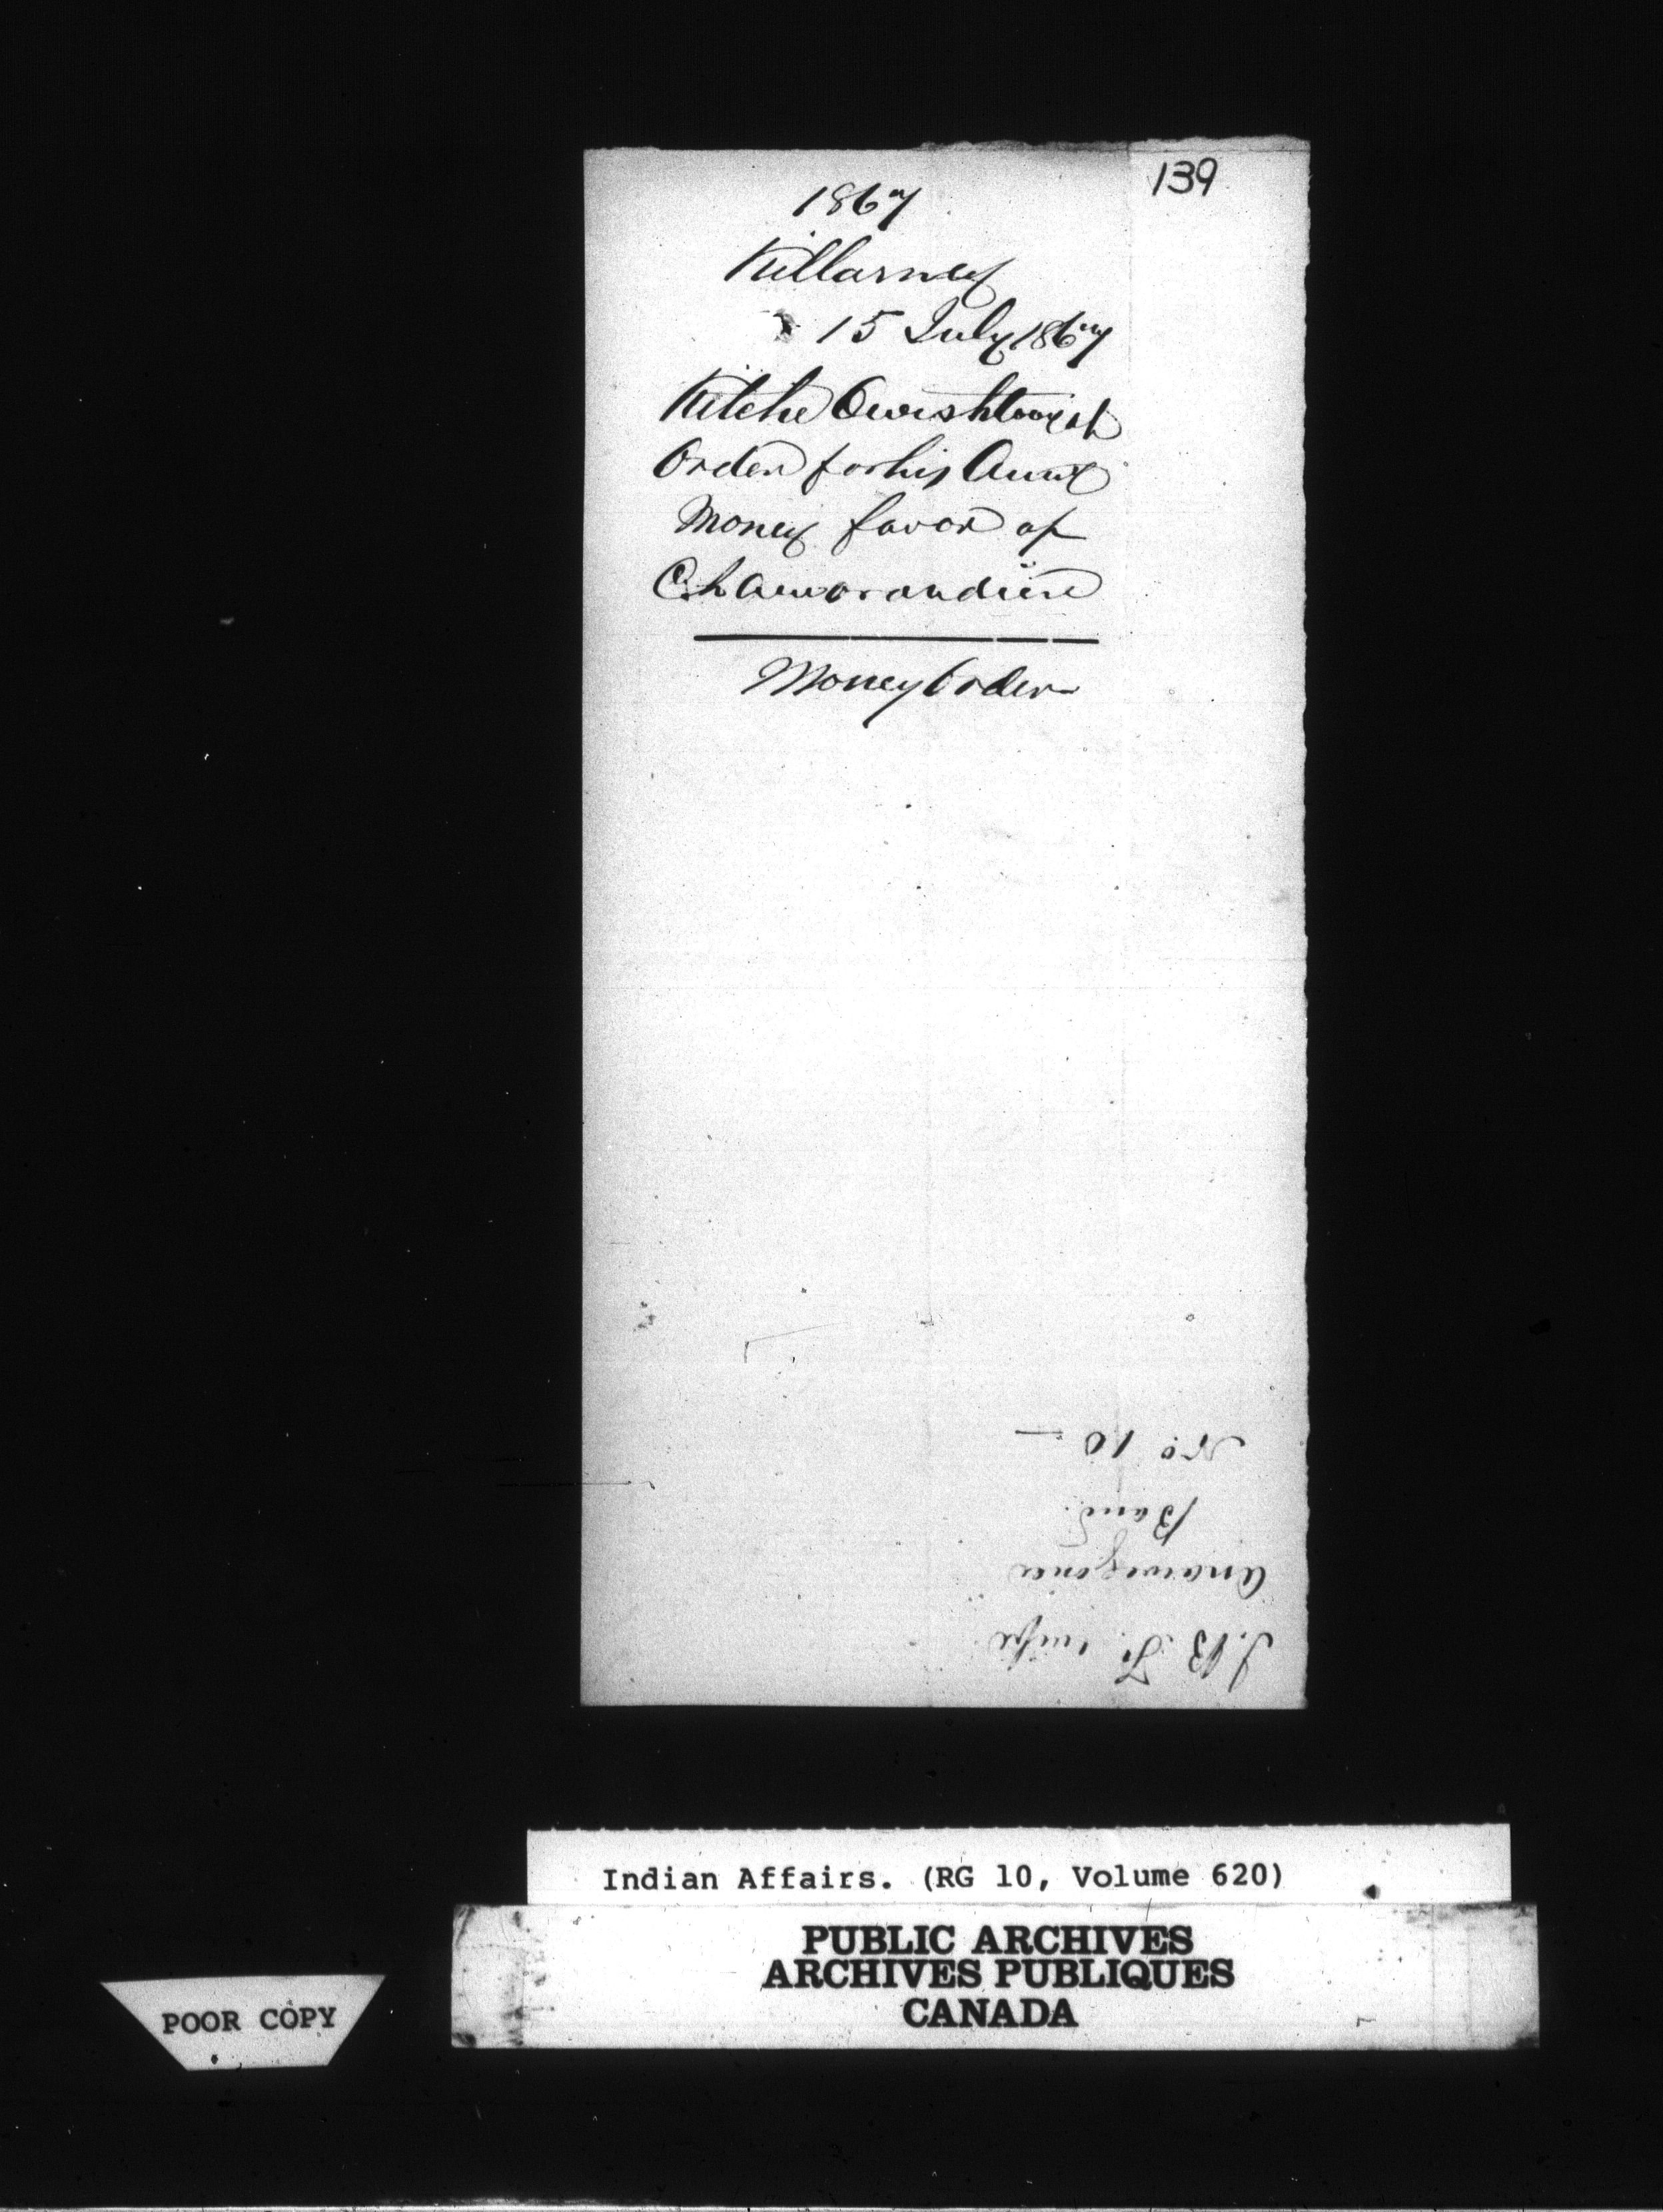 139
1867
Killarney
15 July 1867
Kitche
Order for his Aunt
Money favor of
C. Lamorandiere
Money Order
J. B. T. wife
Band
No. 10 —
Indian Affairs. (RG 10, Volume 620)
PUBLIC ARCHIVES
ARCHIVES PUBLIQUES
CANADA
POOR COPY